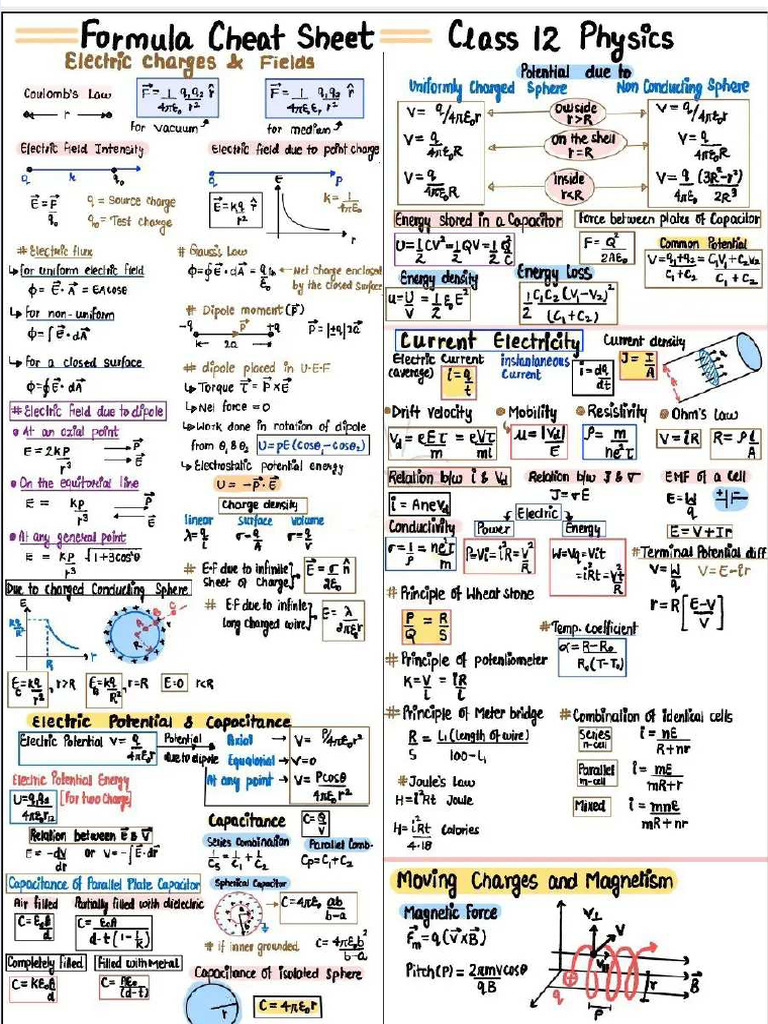 Formula Cheat Sheet Class 12 Physics
Electric Charges & Fields
Coulomb's Law
F⃗ = 1/4πε₀ q₁q₂/r² r̂
for vacuum
F⃗ = 1/4πε₀εᵣ q₁q₂/r² r̂
for medium
r
Electric Field Intensity
q r q₀
E⃗ = F⃗/q₀
q = Source charge
q₀ = Test charge
Electric field due to point charge
q P
E⃗ = kq/r² r̂
E
r
k = 1/4πε₀
# Electric flux
↳ for uniform electric field
ϕ = E⃗·A⃗ = EAcosθ
↳ For non-uniform
ϕ = ∫E⃗·dA⃗
↳ For a closed surface
ϕ = ∮E⃗·dA⃗
# Gauss's Law
ϕ = ∮E⃗·dA⃗ = qin/ε₀
Net charge enclosed
by the closed Surface
# Dipole moment (P⃗)
-q P⃗ +q
2a
P⃗ = |±q|2a⃗
# dipole placed in U·E·F
↳ Torque τ⃗ = P⃗×E⃗
↳ Net force = 0
↳ Work done in rotation of dipole
from θ₁ & θ₂ U = pE(Cosθ₁-cosθ₂)
↳ Electrostatic potential energy
U = -P⃗·E⃗
# Electric field due to dipole
At an axial point
E = 2kp/r³
P⃗
E⃗
On the equitorial line
E = kp/r³
P⃗
E⃗
At any general point
E = kp/r³ √1+3cos²θ
Charge density
linear surface volume
λ = q/L σ = q/A σ = q/V
# E·F due to infinite
Sheet of Charge
E⃗ = σ/2ε₀ n̂
# E·F due to infinite
long charged wire
E = λ/2πε₀r
Due to charged Conducting Sphere
E
kq/R²
R
r
A B C
R
E_C = kq/r², r>R
E_B = kq/R², r=R
E=0 r<R
Electric Potential & Capacitance
Electric Potential V = q/4πε₀r
Potential
due to dipole
Axial V = P/4πε₀r²
Equatorial V=0
At any point V = Pcosθ/4πε₀r²
Electric Potential Energy
U = q₁q₂/4πε₀r₁₂ [For two Charge]
Relation between E⃗ & V⃗
E = -dV/dr or V = -∫E⃗·dr⃗
Capacitance C = Q/V
Series Combination
1/Cs = 1/C₁ + 1/C₂
Parallel Comb·
Cp = C₁+C₂
Capacitance of Parallel Plate Capacitor
Air filled
C = ε₀A/d
Partially filled with dielectric
C = ε₀A/d-t(1-1/k)
Completely filled
C = Kε₀A/d
Filled with Metal
C = Aε₀/(d-t)
Spherical Capacitor
C = 4πε₀ ab/b-a
# if inner grounded C = 4πε₀b²/b-a
Capacitance of isolated sphere
r
C = 4πε₀r
Potential due to
Uniformly Charged Sphere Non Conducting Sphere
V = q/4πε₀r Outside r>R V = q/4πε₀r
V = q/4πε₀R On the shell r=R V = q/4πε₀R
V = q/4πε₀R Inside r<R V = q/4πε₀ (3R²-r²)/2R³
Energy stored in a Capacitor
U = 1/2CV² = 1/2QV = 1/2 Q²/C
Force between plates of Capacitor
F = Q²/2Aε₀
Common Potential
V = q₁+q₂/C₁+C₂ = C₁V₁+C₂V₂/C₁+C₂
Energy density
u = U/V = 1/2ε₀E²
Energy Loss
1/2 C₁C₂(V₁-V₂)²/(C₁+C₂)
Current Electricity
Electric Current
(average) i = q/t
instantaneous
Current i = dq/dt
Current density
J = I/A
Drift Velocity
Vd = eEτ/m = eVτ/ml
Mobility
μ = |Vd|/E
Resistivity
ρ = m/ne²τ
Ohm's Law
V = iR R = ρl/A
Relation b/w i & Vd
i = AneVd
Relation b/w J & σ
J = σE
EMF of a Cell
E = W/q
E = V+Ir
Conductivity
σ = 1/ρ = ne²τ/m
Electric
Power
P=Vi=i²R=V²/R
Energy
W=Vq=Vit
=i²Rt=V²t/R
# Terminal Potential diff
V = W/q V = E-ir
r = R[E-V/V]
# Principle of Wheat stone
P/Q = R/S
# Temp. Coefficient
α = R-R₀/R₀(T-T₀)
# Principle of potentiometer
K = V/l = iR/l
# Principle of Meter bridge
R/S = L₁(length of wire)/100-L₁
# Joule's Law
H=i²Rt Joule
H = i²Rt/4·18 Calories
# Combination of identical cells
Series
n-cell
i = nE/R+nr
Parallel
m-cell
i = mE/mR+r
Mixed
i = mnE/mR+nr
Moving Charges and Magnetism
Magnetic Force
F⃗m = q(V⃗×B⃗)
Pitch(P) = 2πmvcosθ/qB
V⊥ V
q
r
B⃗
P